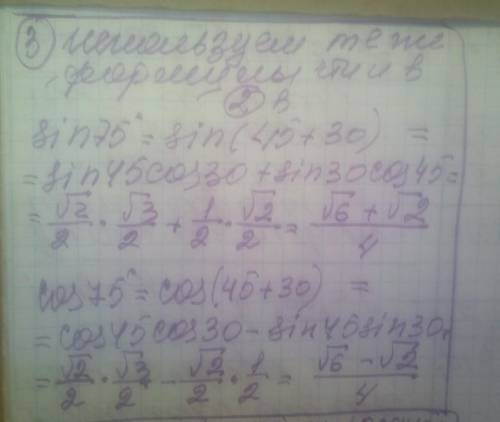 ③ используем те же
формулы что и в
② в
sin75° = sin(45+30) =
= sin45cos30 + sin30cos45 =
= √2/2 · √3/2 + 1/2 · √2/2 = (√6 + √2)/4
cos75° = cos(45+30) =
= cos45cos30 - sin45sin30 =
= √2/2 · √3/2 - √2/2 · 1/2 = (√6 - √2)/4